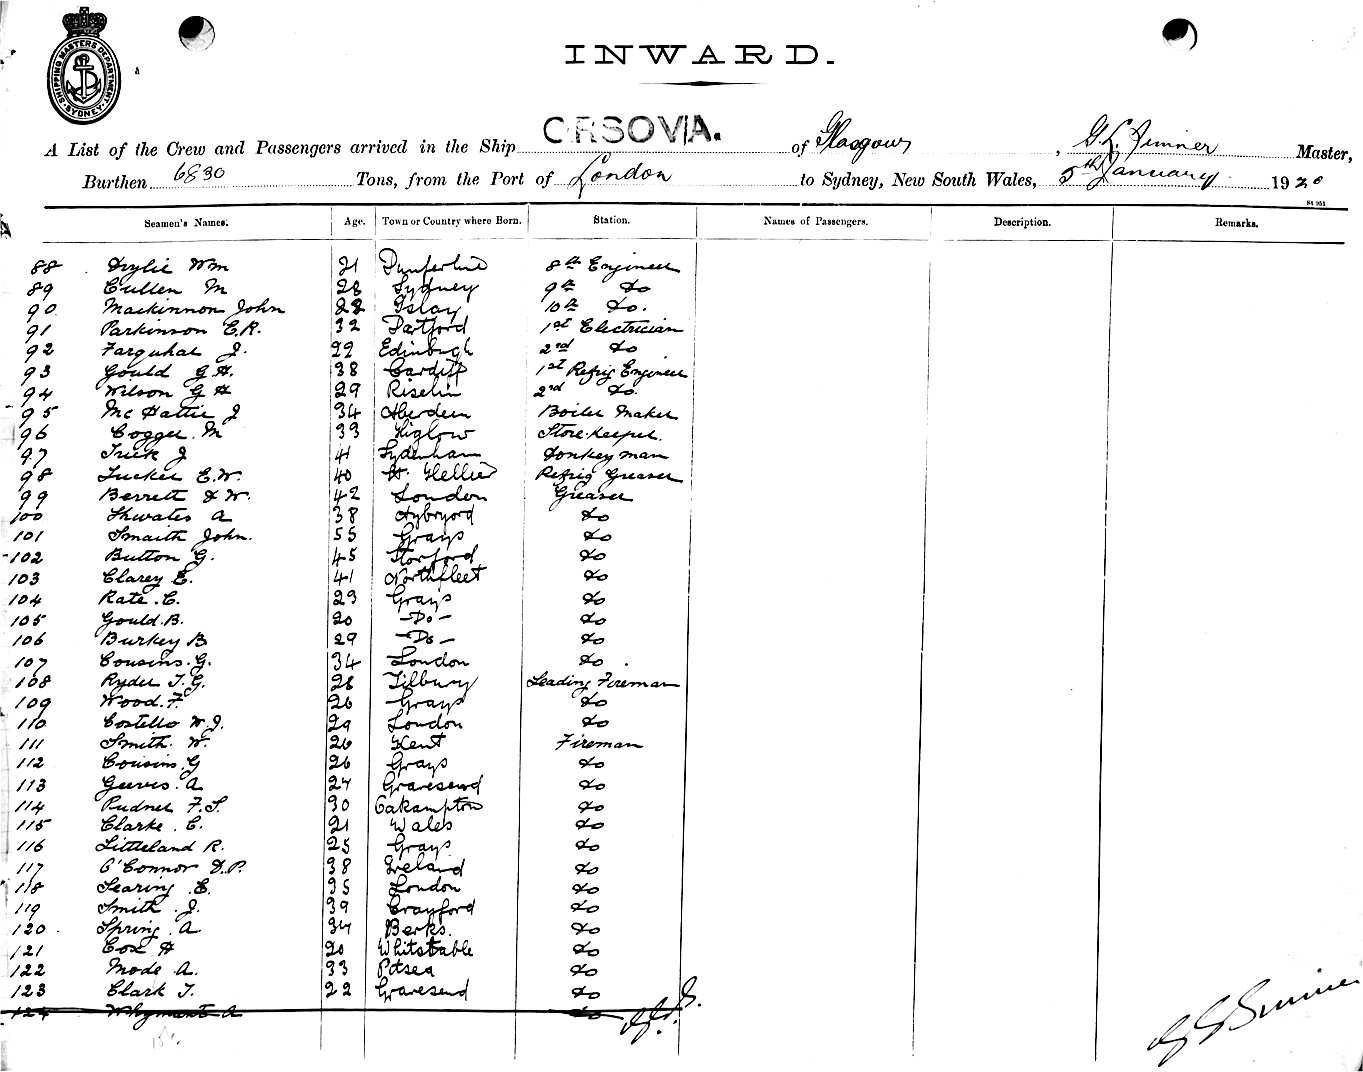 SHIPPING MASTERS DEPARTMENT SYDNEY
INWARD.
A List of the Crew and Passengers arrived in the Ship ORSOVA. of Glasgow, Master,
Burthen 6830 Tons, from the Port of London to Sydney, New South Wales, 5th January 1920
St 951
Seamen's Names. Age. Town or Country where Born. Station. Names of Passengers. Description. Remarks.
88 Wm 21 8th Engineer
89 Cullen M 28 Sydney 9th do
90 Mackinnon John 28 Islay 10th do.
91 Parkinson E.R. 32 Dartford 1st Electrician
92 Farquhar J. 22 Edinburgh 2nd do
93 Gould G.H. 38 Cardiff 1st Refrig Engineer
94 Wilson G H 29 2nd do.
95 McHattie J 34 Aberdeen Boiler Maker
96 Cogger M 33 Higlow Store-keeper.
97 Trick J 41 Sydenham Donkeyman
98 Tucker E.W. 40 St. Hellier Refrig Greaser
99 Berrett W. 42 London Greaser
100 A 38 do
101 Smaith John. 55 Grays do
102 Button G. 45 Storford do
103 Clarey E. 41 Northfleet do
104 Kate. C. 23 Grays do
105 Gould. B. 20 -Do- do
106 Burkey B 29 -Do- do
107 Cousins. G. 34 London do.
108 Ryder T.G. 28 Tilbury Leading Fireman
109 Wood. F. 26 Grays do
110 Costello W.J. 29 London do
111 Smith. W. 26 Kent Fireman
112 Cousins. G 26 Grays do
113 Geeves. A 24 Gravesend do
114 F.S. 30 Oakampton do
115 Clarke. C. 21 Wales do
116 Littleland R. 25 Grays do
117 O'Connor D.P. 38 Ireland do
118 Searing. E. 35 London do
119 Smith. J. 39 Crayford do
120 Spring. A 34 Berks. do
121 Cox H 20 Whitstable do
122 Mode A. 33 Potsea do
123 Clark T. 22 Gravesend do
124 Whyment A do